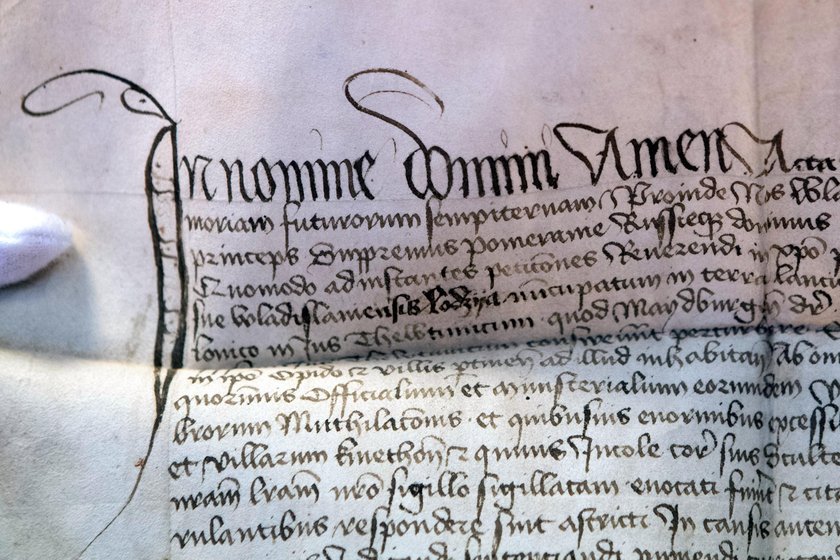 In nomine domini Amen Acta
moriam futurorum sempiternam Proinde Nos Wla
princeps Suppremus Pomeranie Russieqz dominus
Quomodo ad instantes peticiones Reverendi in xpo p
sue Wladislaviensis Lodzya nuncupatum in terra lanci
lonico in Jus Thewtunicum quod Maydburgen dr
in ipo Opido et villis ptinen ad illud inhabitan Ab om
quorumus Officialium et ministerialium eorundem
brorum Muthilaconis et quibusuis enormibus excessi
et villarum kmethon et quiuis Incole cor sius Sculte
nram lram nro sigillo sigillatam euocati fuint et cit
rulantibus respondere sint astricti In causis auten